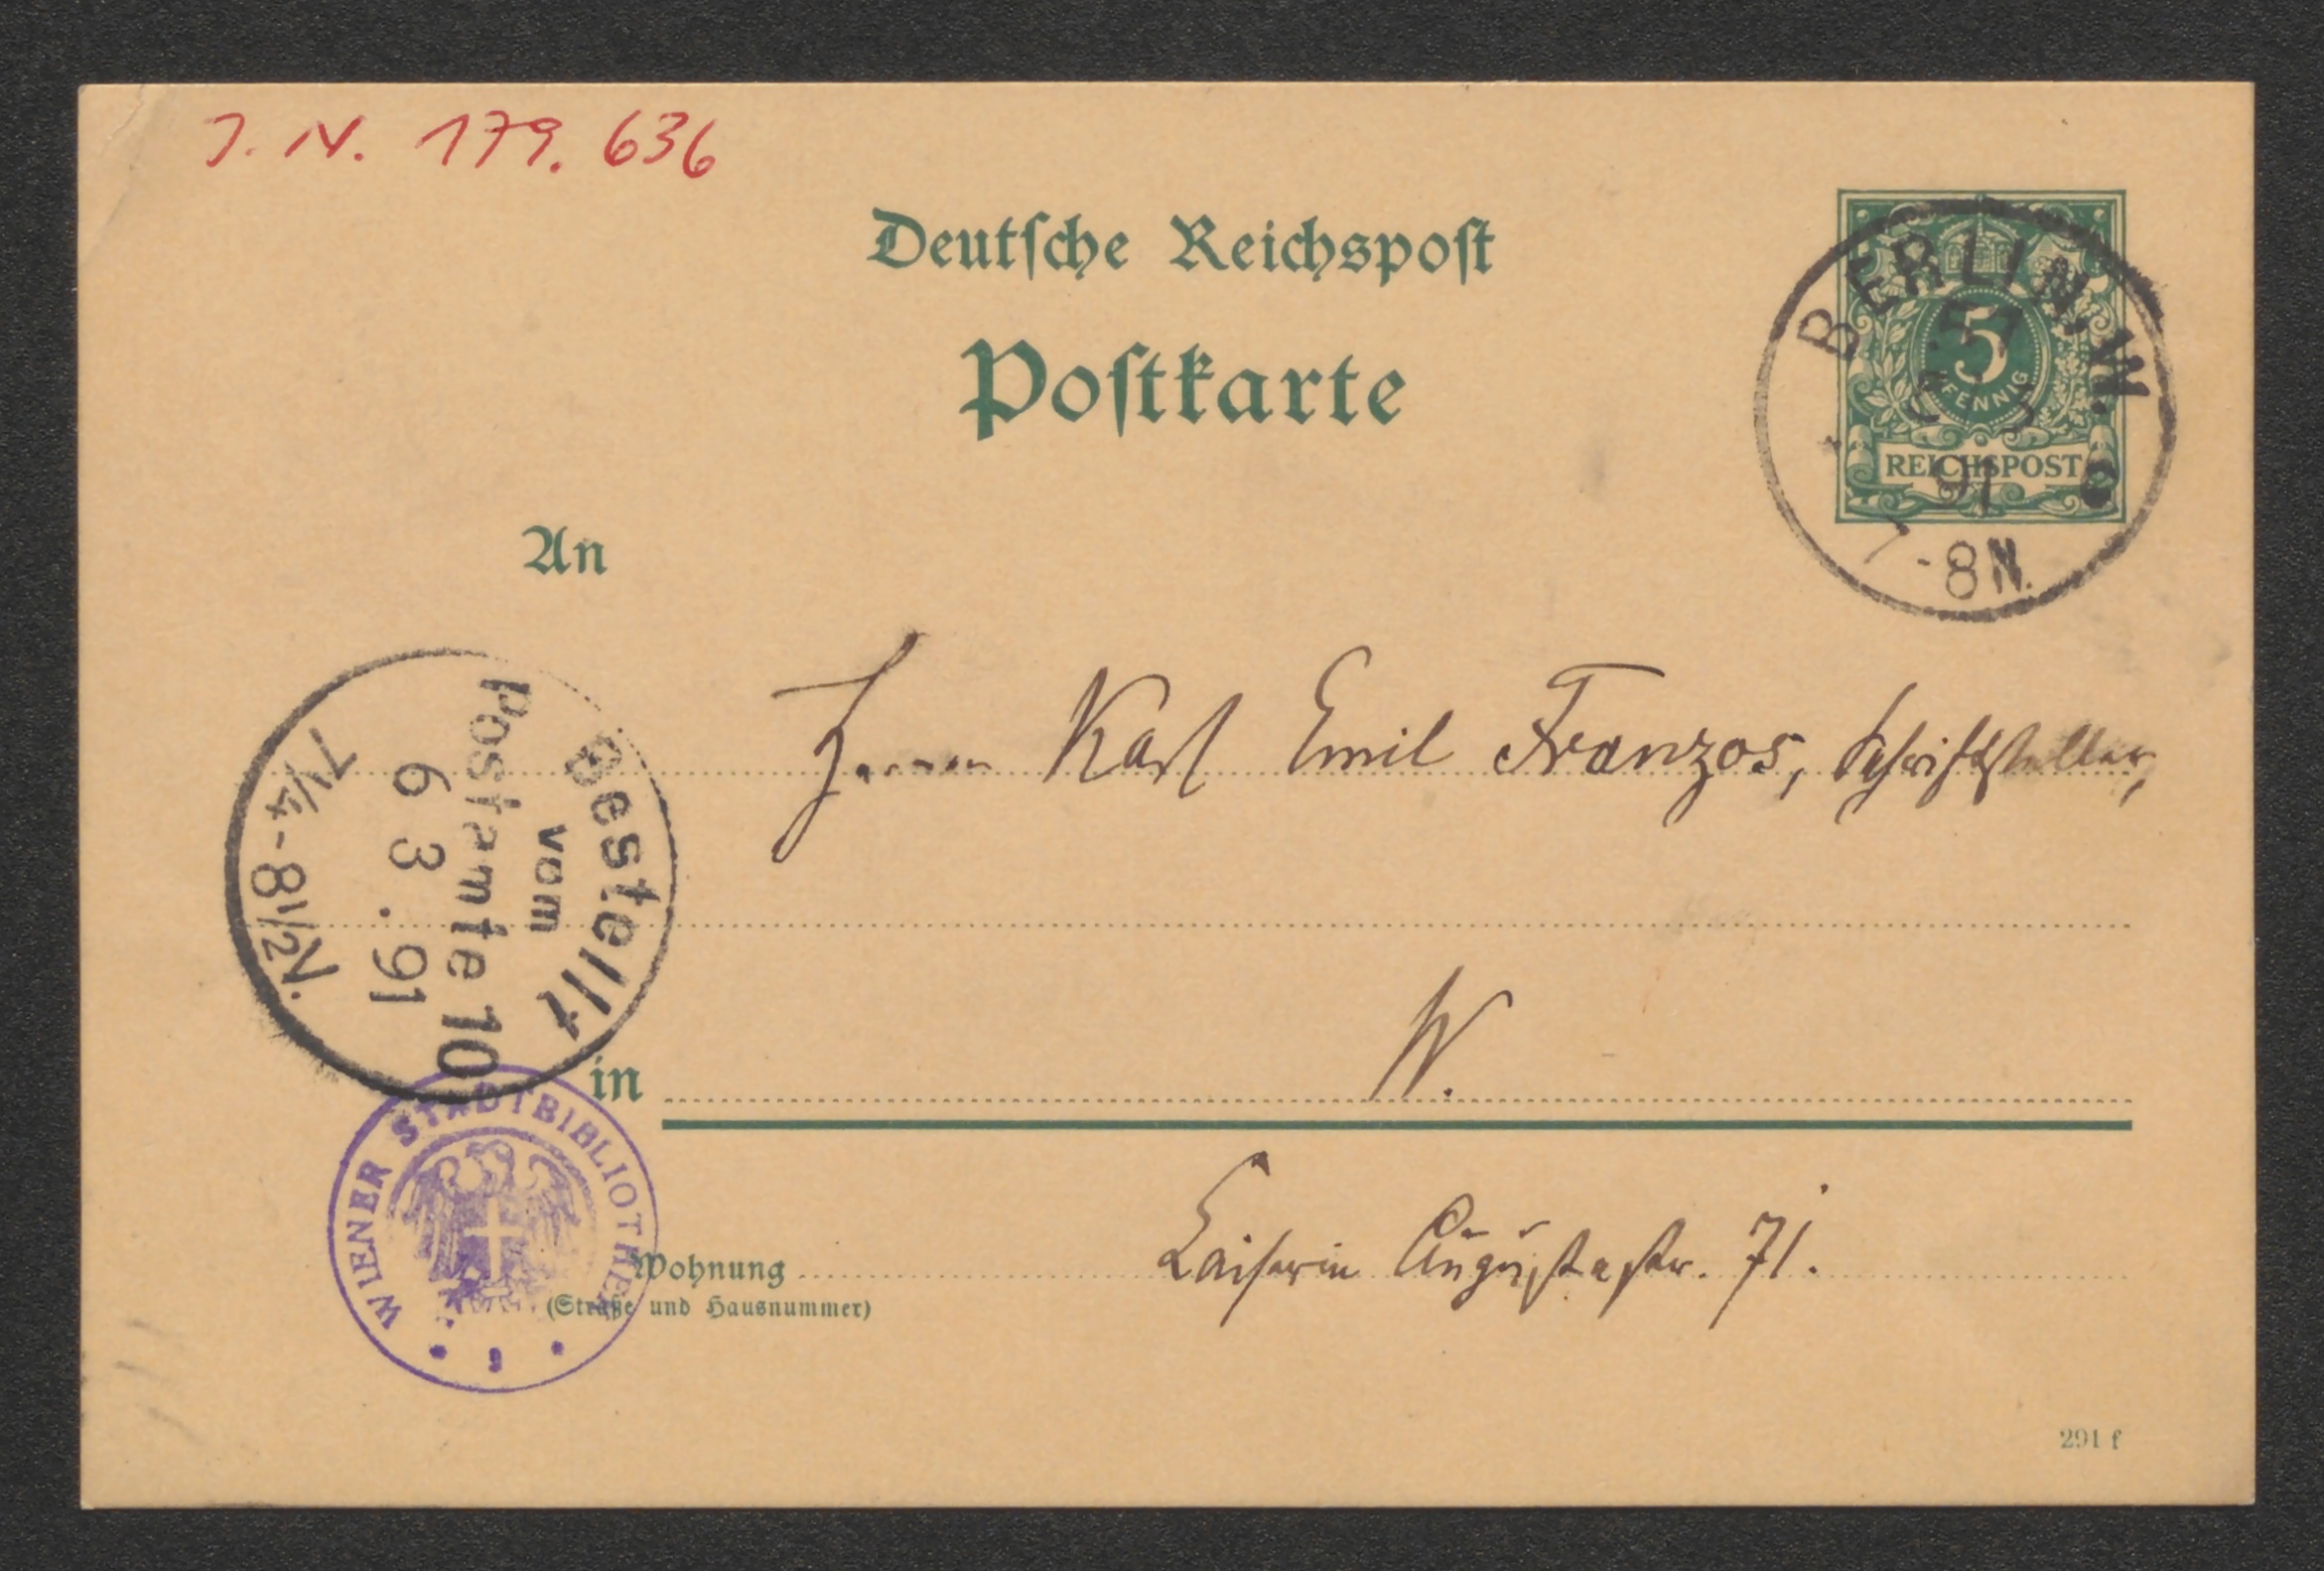 J. N. 179. 636
Deutsche Reichspost
Postkarte
5
PFENNIG
REICHSPOST
BERLIN, W.
57
91
7-8N.
An
Herrn Karl Emil Franzos, Schriftsteller,
Bestellt
vom
Postamte 10
6 3. 91
7¼-8½N.
in W.
WIENER STADTBIBLIOTHEK
Wohnung Kaiserin Augustastr. 71.
(Straße und Hausnummer)
291 f